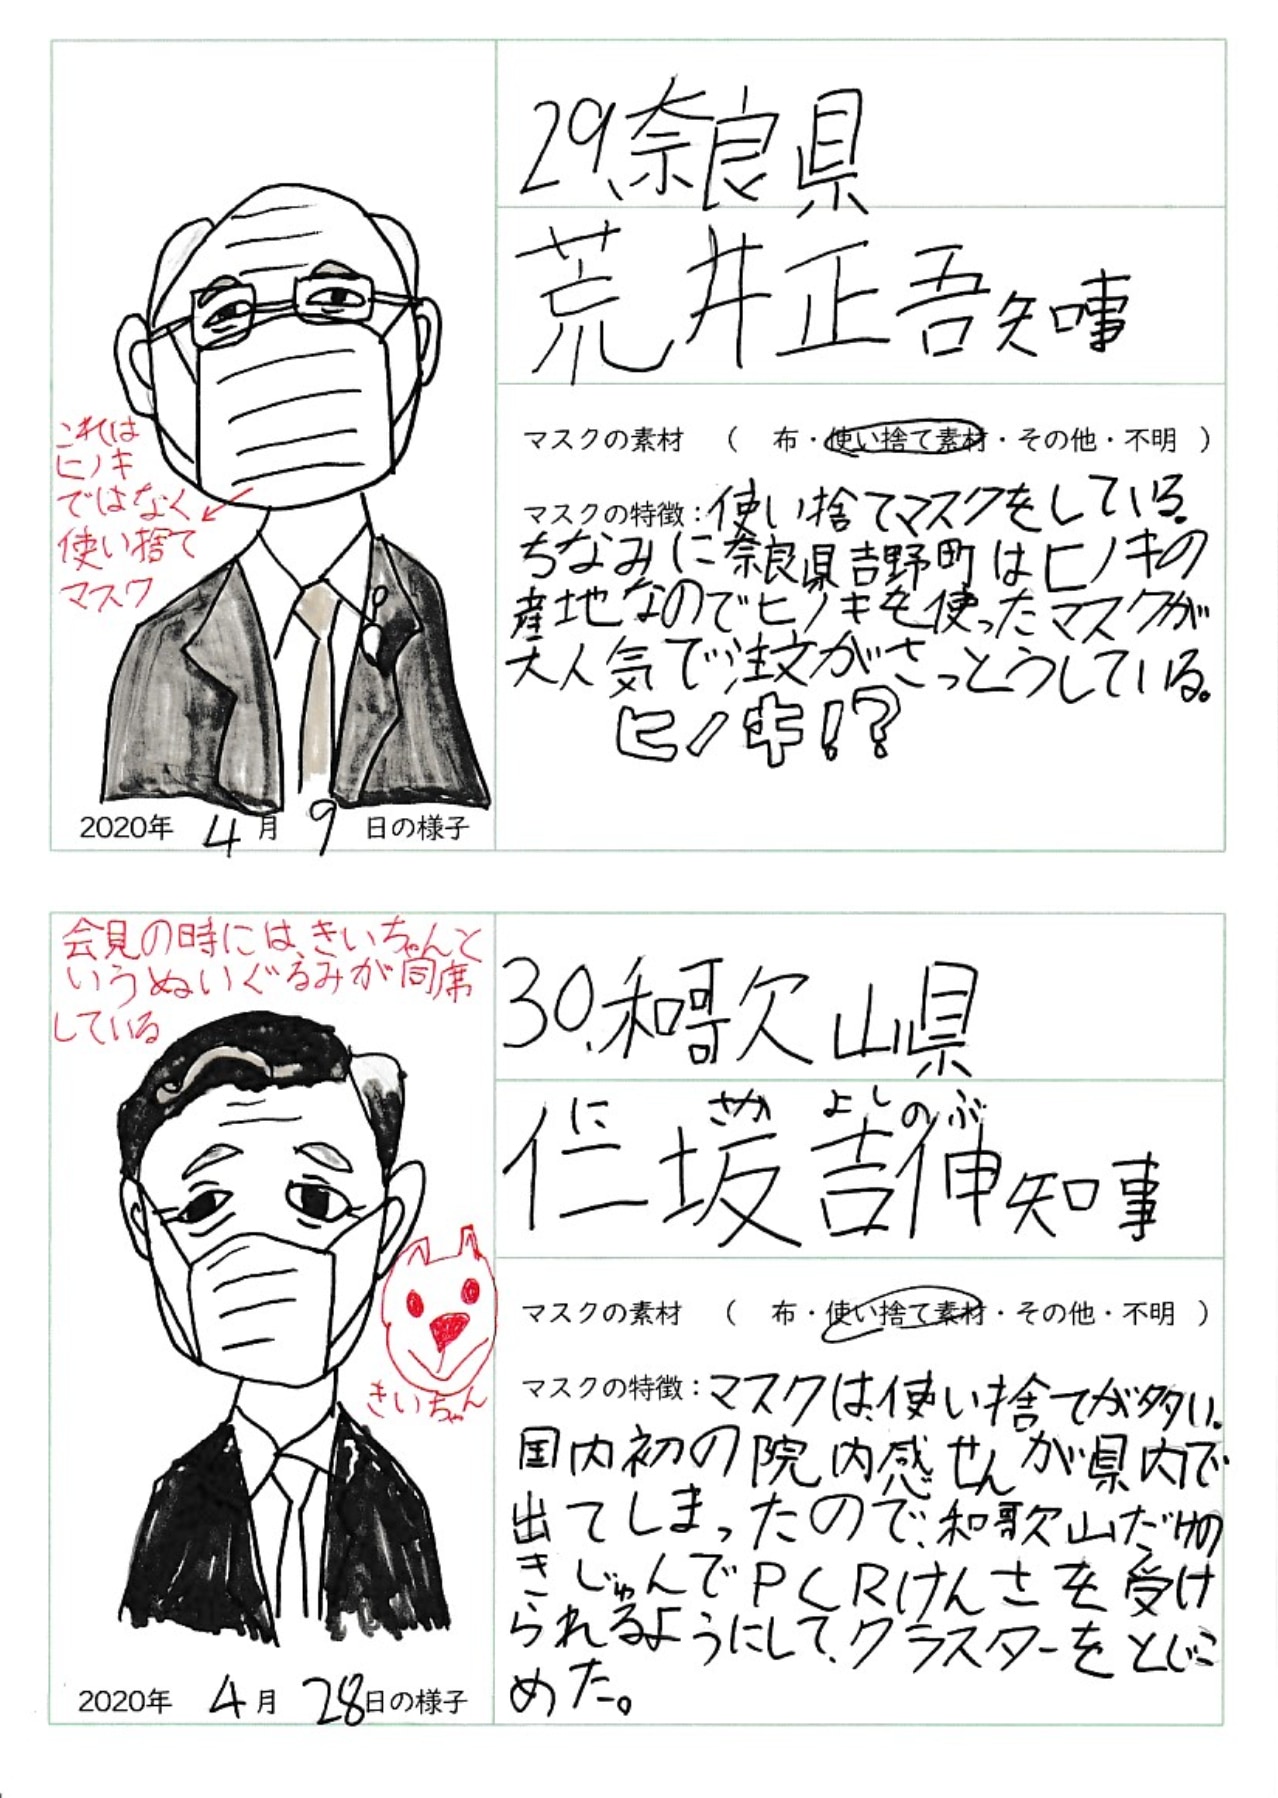 29、奈良県
荒井正吾知事
マスクの素材　（　布・使い捨て素材・その他・不明　）
マスクの特徴：使い捨てマスクをしている。
ちなみに奈良県吉野町はヒノキの
産地なのでヒノキを使ったマスクが
大人気で注文がさっとうしている。
ヒノキ!?
これは
ヒノキ
ではなく
使い捨て
マスク
2020年 4月 9日の様子
会見の時には、きいちゃんと
いうぬいぐるみが同席
している
きいちゃん
2020年 4月 28日の様子
30、和歌山県
に さか よしのぶ
仁坂吉伸知事
マスクの素材　（　布・使い捨て素材・その他・不明　）
マスクの特徴：マスクは、使い捨てが多い。
国内初の院内感せんが県内で
出てしまったので、和歌山だけの
きじゅんでPCRけんさを受け
られるようにして、クラスターをとじこ
めた。